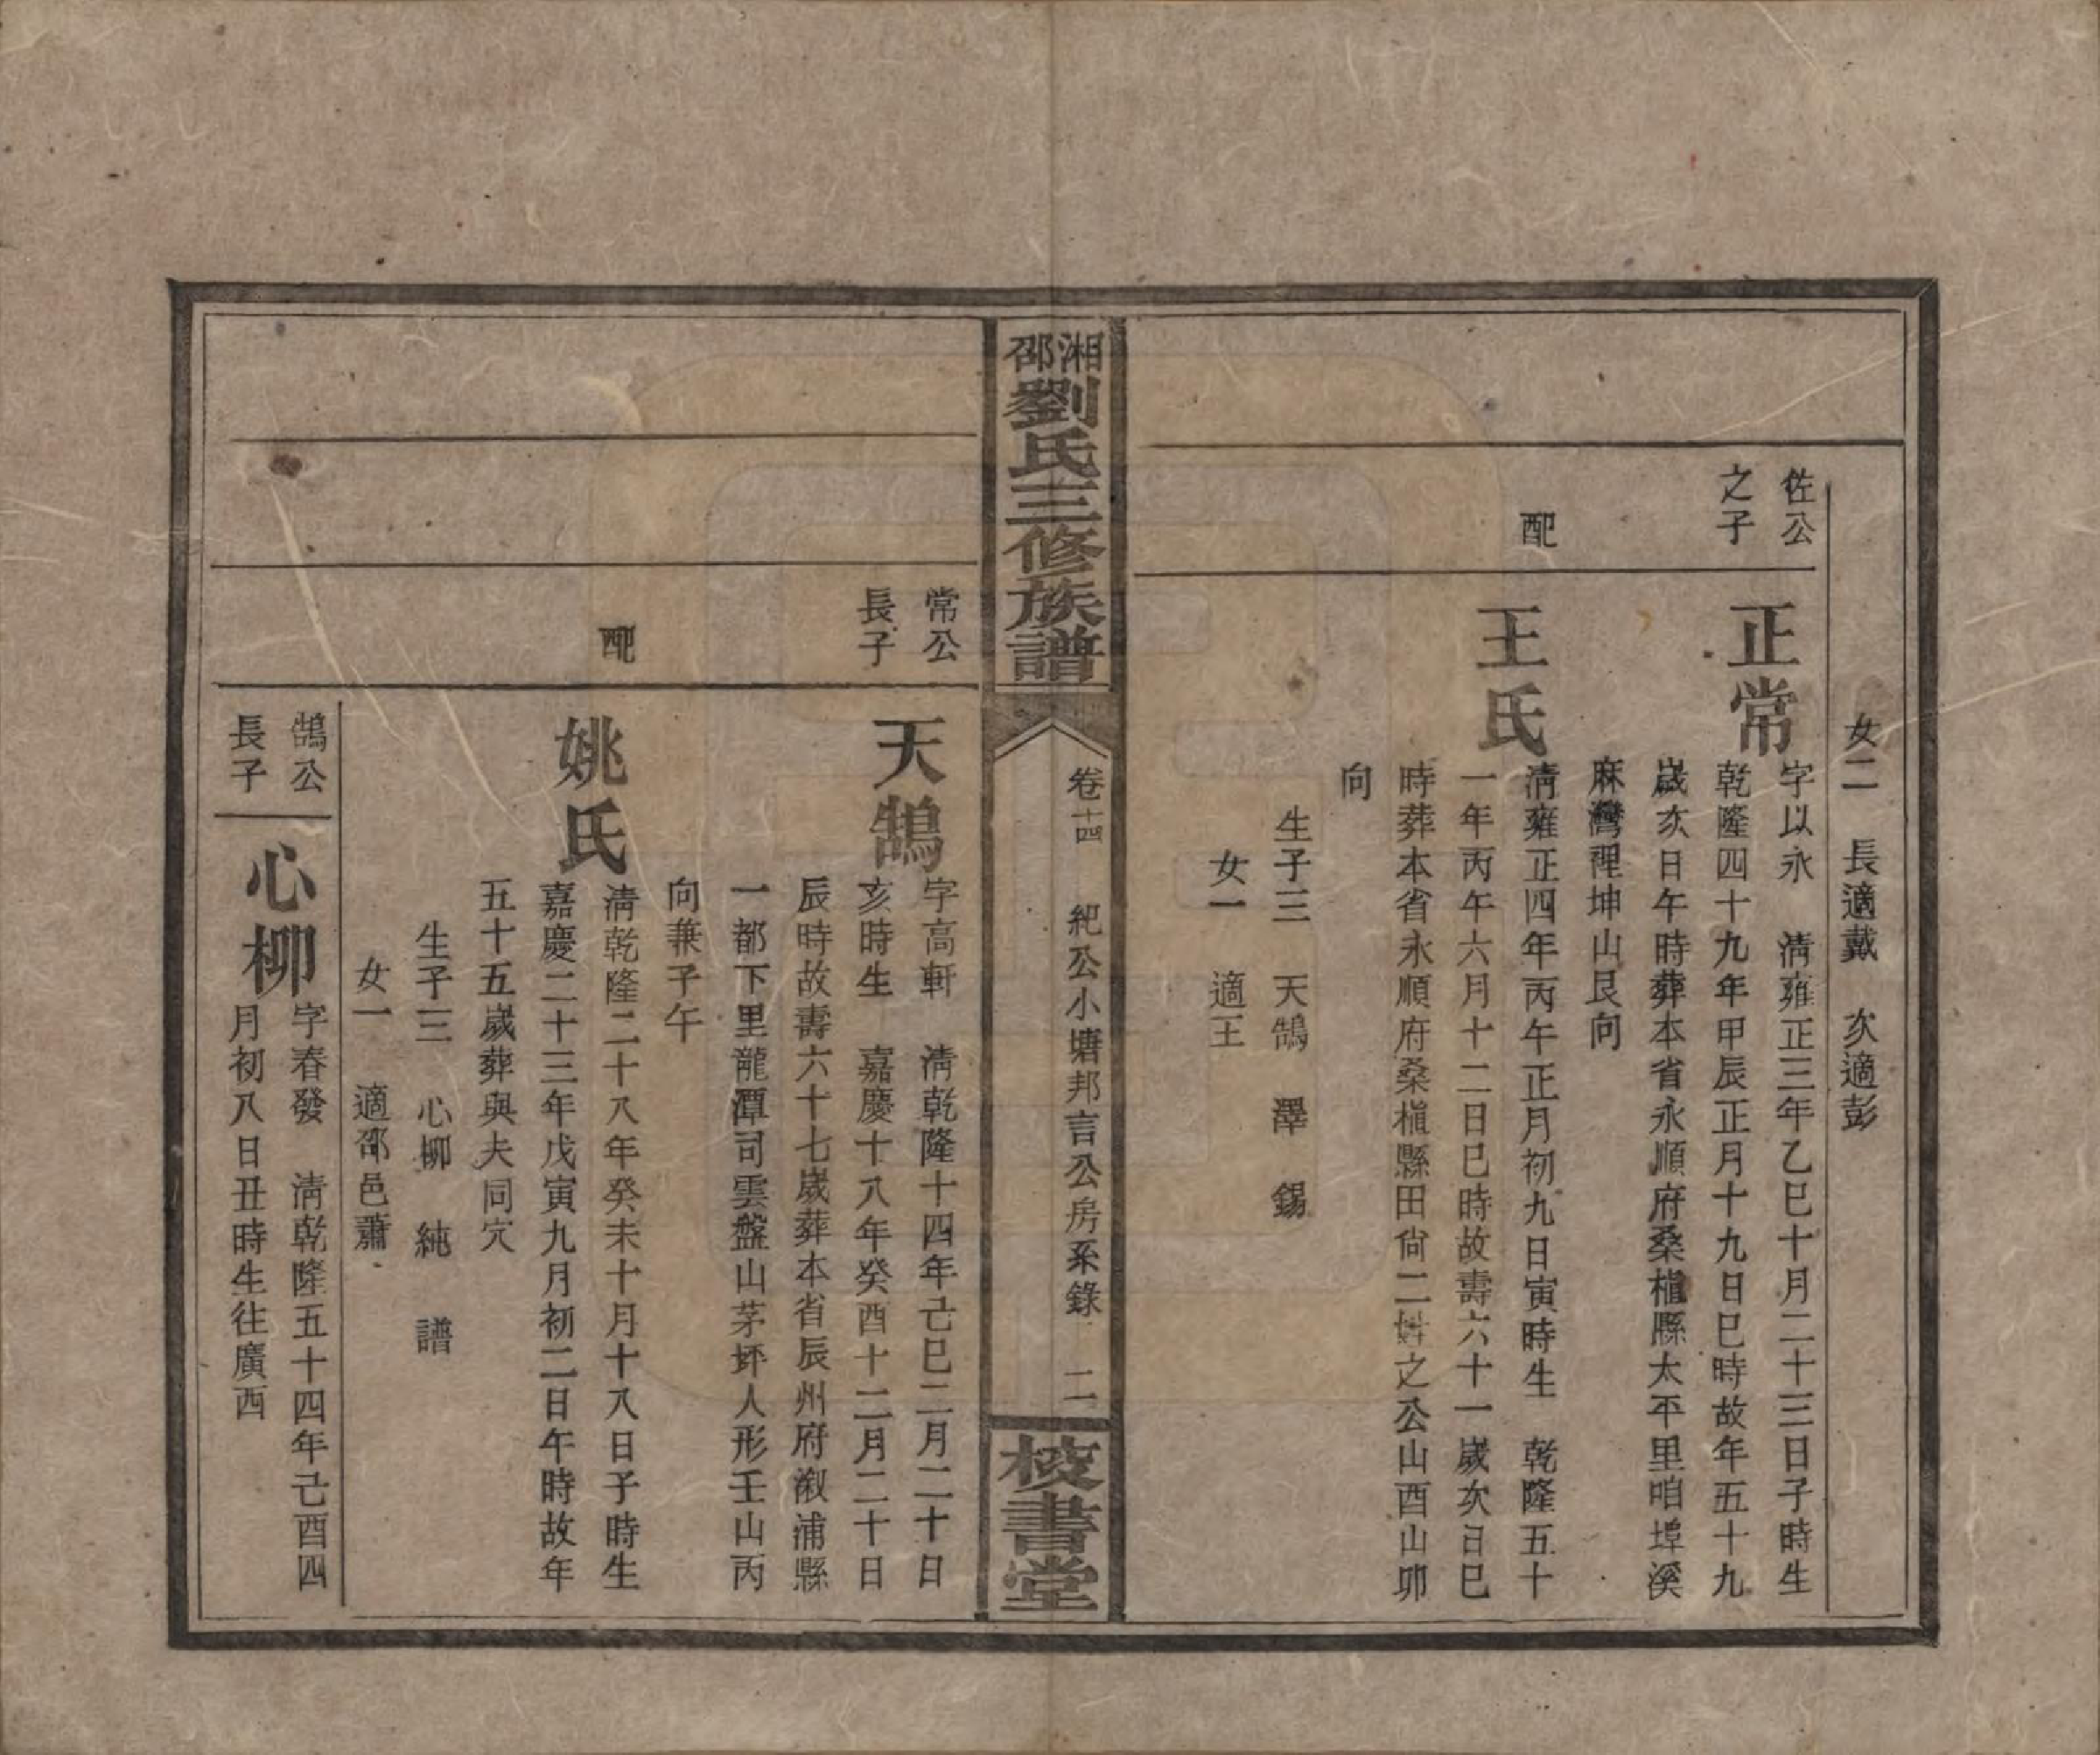 女二　長適戴　次適彭
佐公
之子
正常
字以永　清雍正三年乙巳十月二十三日子時生
乾隆四十九年甲辰正月十九日巳時故年五十九
歲亥日午時葬本省永順府桑植縣太平里咱埠溪
麻灣裡坤山艮向
配
王氏
清雍正四年丙午正月初九日寅時生　乾隆五十
一年丙午六月十二日巳時故壽六十一歲次日巳
時葬本省永順府桑植縣田尙二姓之公山酉山卯
向
生子三　天鵠　澤　錫
女一　適王
湘邵
劉氏三修族譜
卷十四　紀公小塘邦言公房系錄　二
校書堂
常公
長子
天鵠
字高軒　清乾隆十四年己巳二月二十日
亥時生　嘉慶十八年癸酉十二月二十日
辰時故壽六十七歲葬本省辰州府溆浦縣
一都下里龍潭司雲盤山茅坪人形壬山丙
向兼子午
配
姚氏
清乾隆二十八年癸未十月十八日子時生
嘉慶二十三年戊寅九月初二日午時故年
五十五歲葬與夫同穴
生子三　心柳　純　譜
女一　適邵邑蕭
鵠公
長子
心柳
字春發　清乾隆五十四年己酉四
月初八日丑時生往廣西